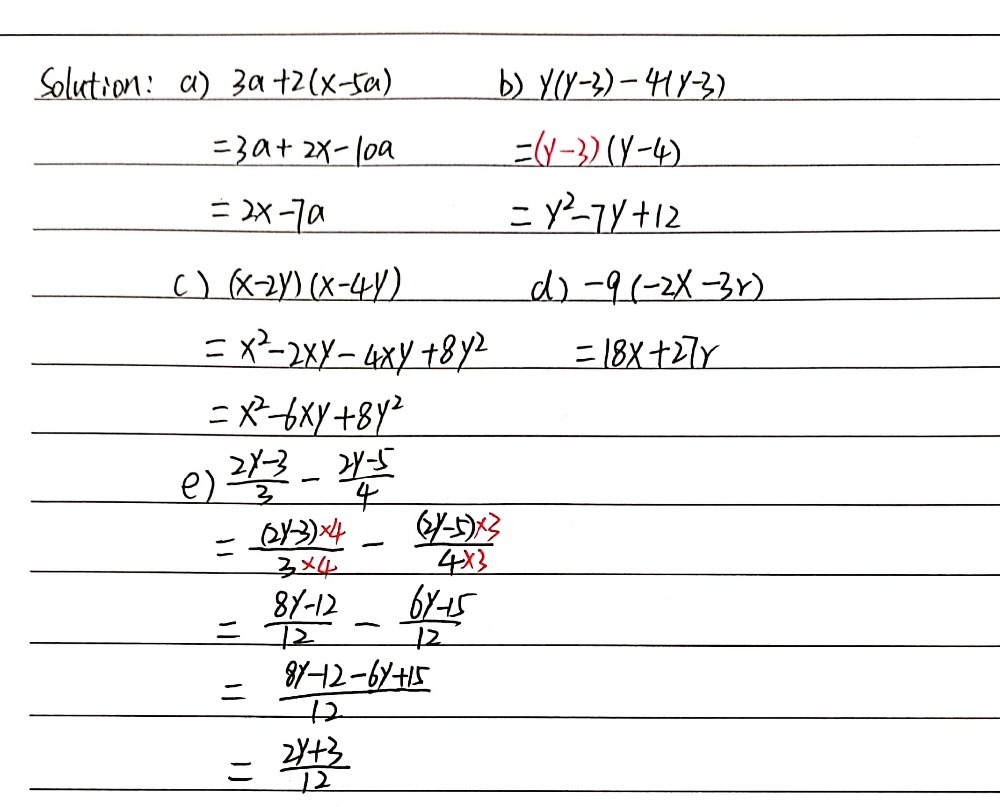 Solution: a) 3a+2(x-5a) b) y(y-3)-4(y-3)
=3a+2x-10a =(y-3)(y-4)
=2x-7a =y²-7y+12
c) (x-2y)(x-4y) d) -9(-2x-3r)
=x²-2xy-4xy+8y² =18x+27r
=x²-6xy+8y²
e) \frac{2y-3}{3} - \frac{2y-5}{4}
= \frac{(2y-3)×4}{3×4} - \frac{(2y-5)×3}{4×3}
= \frac{8y-12}{12} - \frac{6y-15}{12}
= \frac{8y-12-6y+15}{12}
= \frac{2y+3}{12}